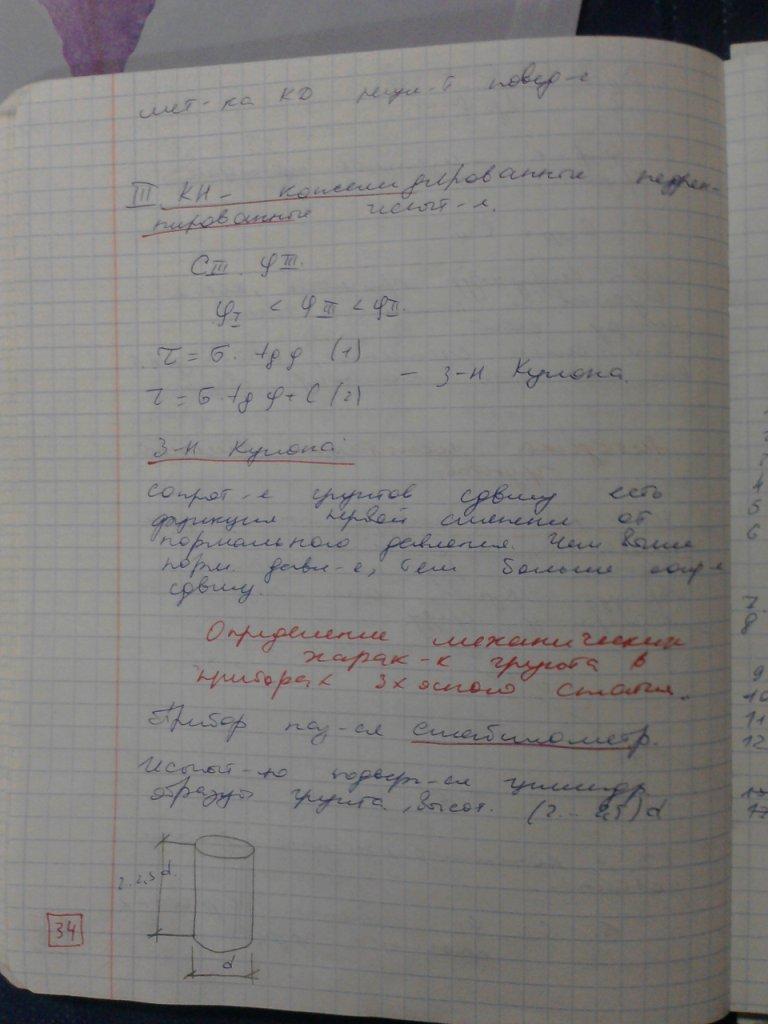 мет-ка КД
III КН - консолидированные недрен-
нированные испыт-е.
CIII φIII.
φI < φIII < φII.
τ = σ · tg φ (1)
τ = σ · tg φ + C (2)
- З-н Кулона.
З-н Кулона:
сопрот-е грунтов сдвигу есть
функция первой степени от
нормального давления. Чем выше
норм. давл-е, тем больше сопр-е
сдвигу.
Определение механических
харак-к грунта в
приборах 3х осного сжатия.
Прибор наз-ся стабилометр.
Испыт-ю подверг-ся цилиндр.
образцы грунта, высот. (2 - 2,5)d
2..2,5 d.
d
34
4
5
6
7.
8
9
10
11
12